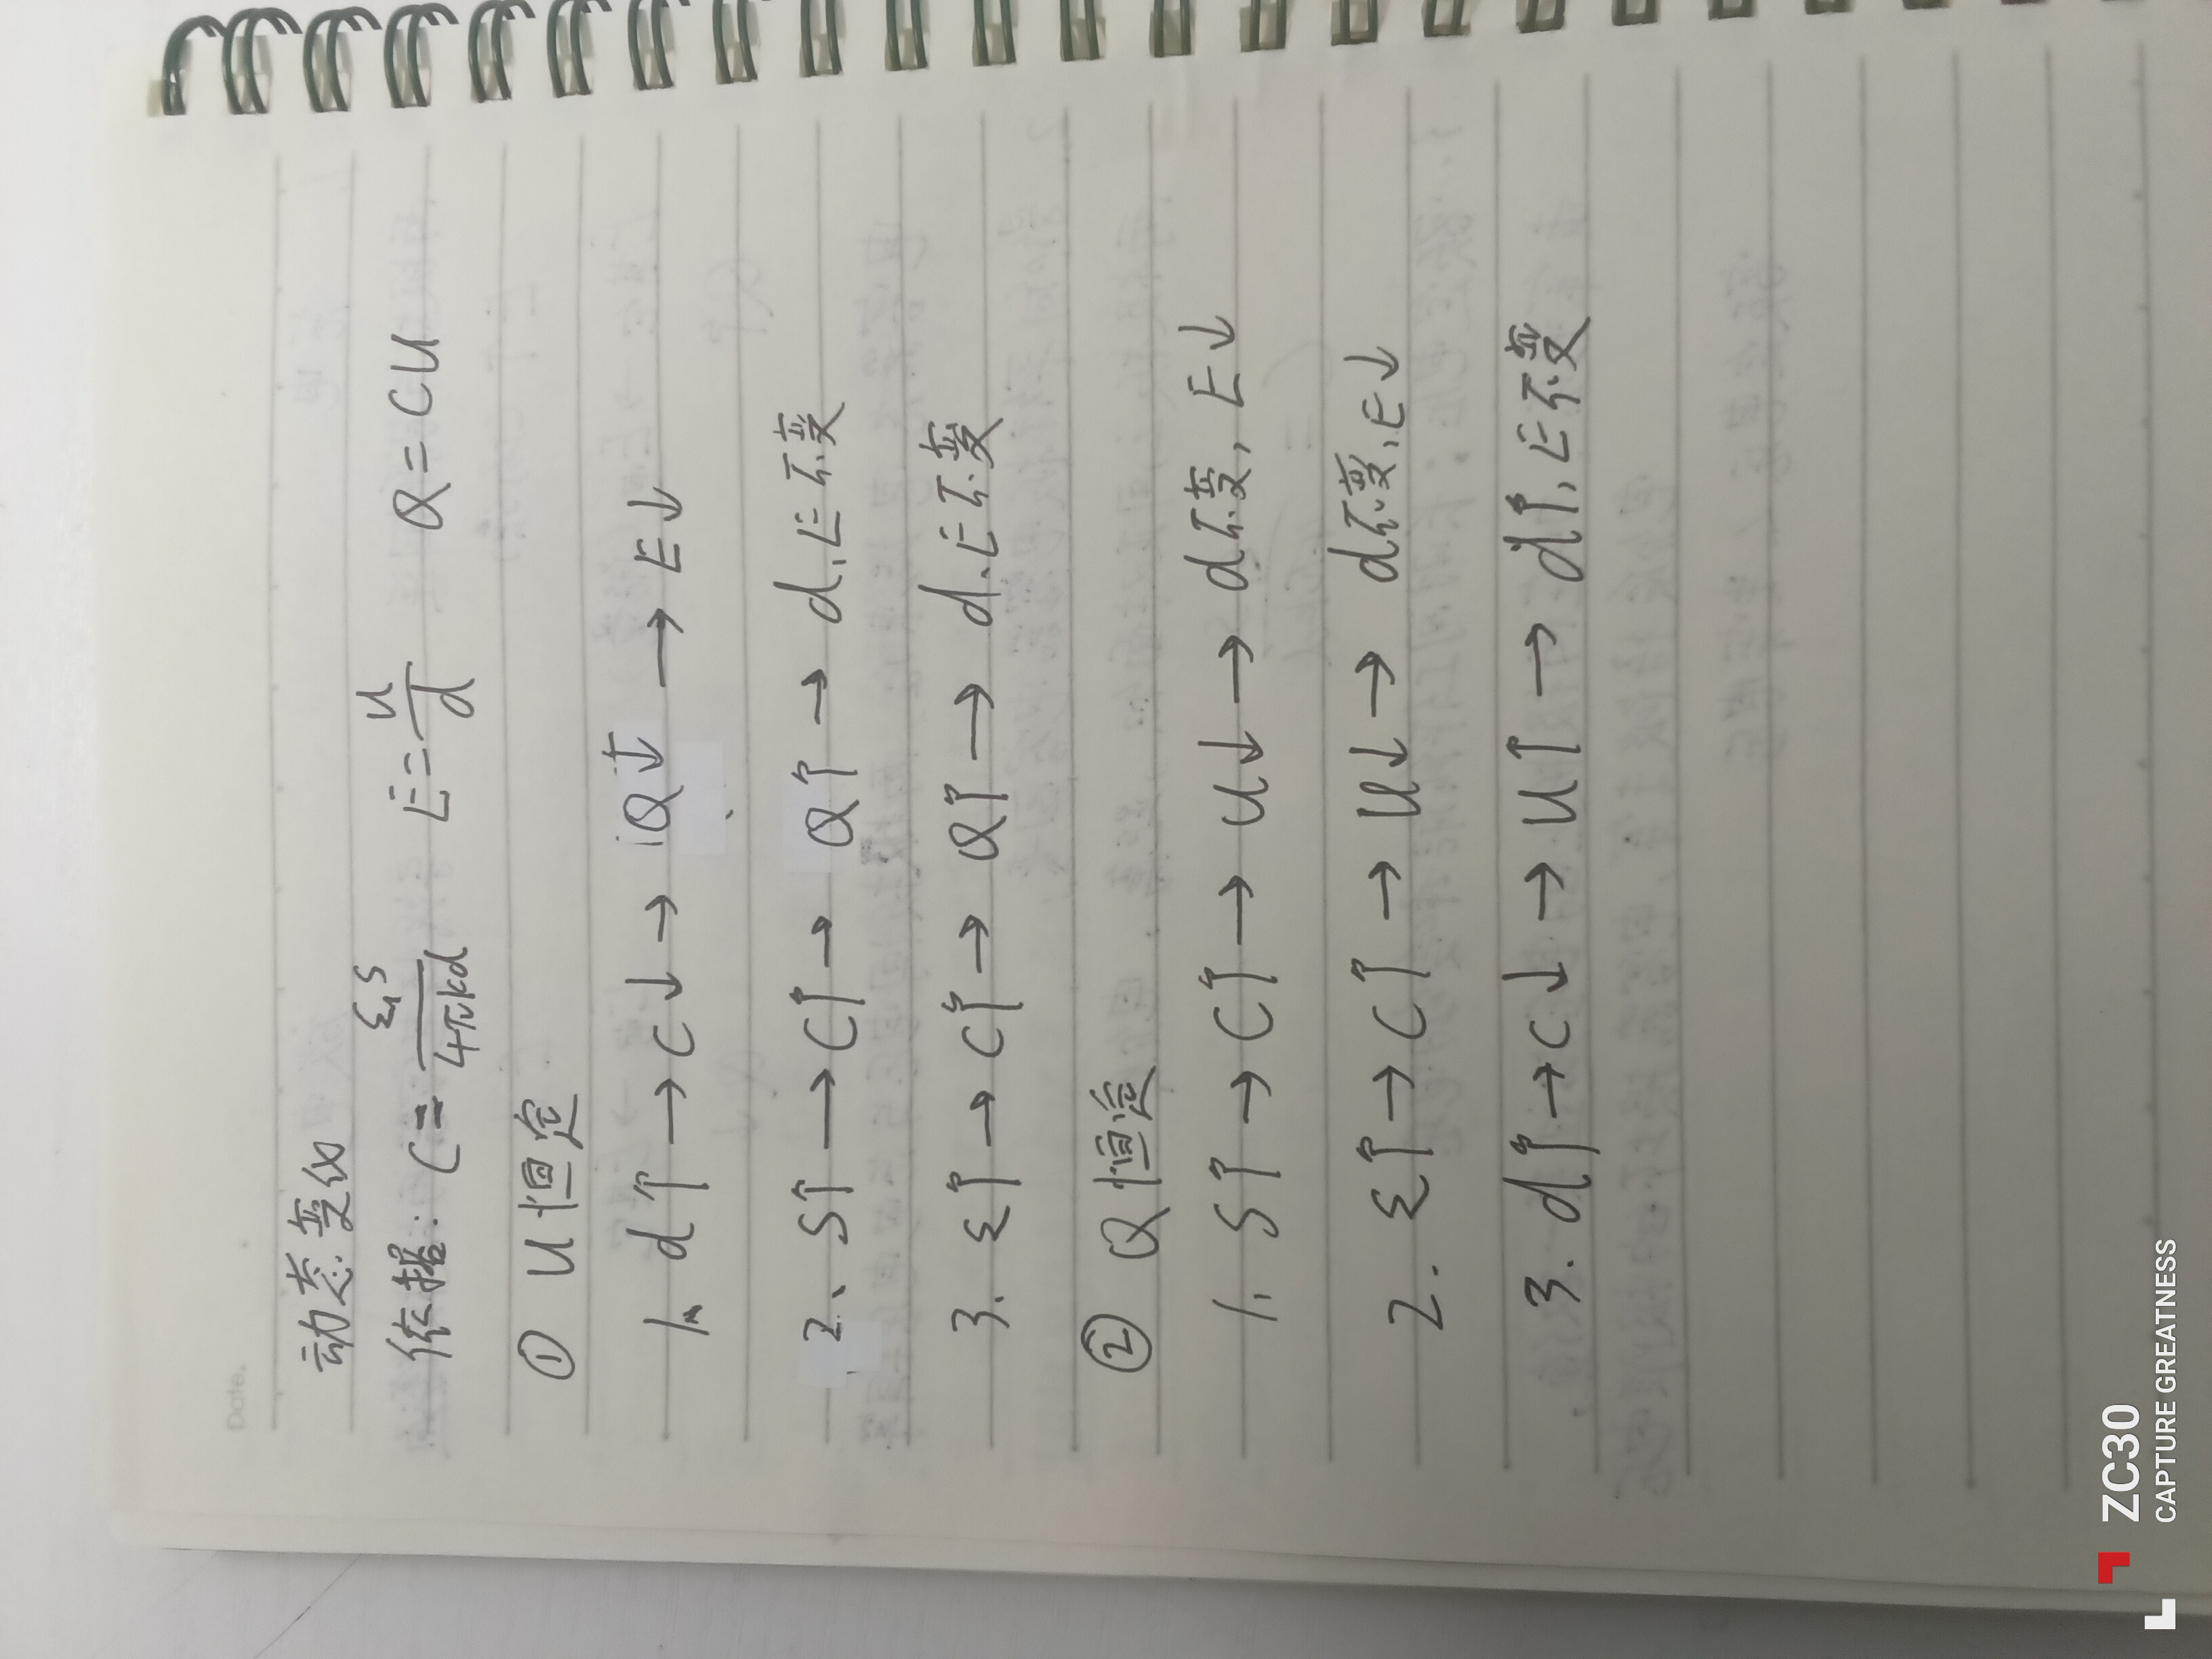 Date.
动态变化
依据: C = εrS/4πkd E = U/d Q = CU
① U恒定
1. d↑ → C↓ → Q↓ → E↓
2、S↑ → C↑ → Q↑ → d、E不变
3. ε↑ → C↑ → Q↑ → d、E不变
② Q恒定
1. S↑ → C↑ → U↓ → d不变, E↓
2. ε↑ → C↑ → U↓ → d不变, E↓
3. d↑ → C↓ → U↑ → d↑, E不变
ZC30
CAPTURE GREATNESS